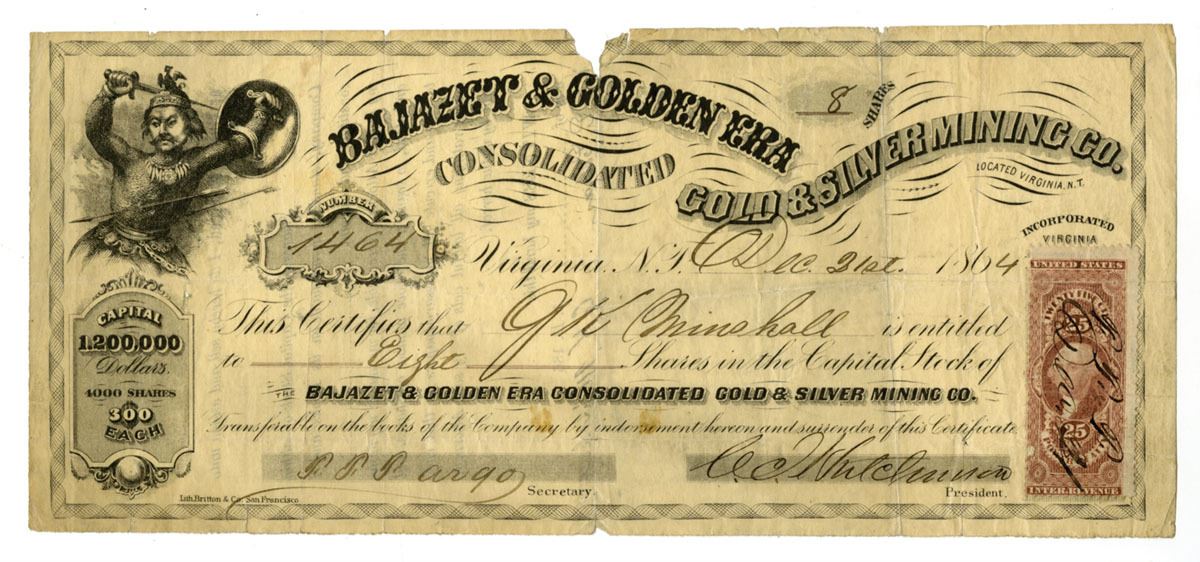 BAJAZET & GOLDEN ERA
CONSOLIDATED
8 SHARES
GOLD & SILVER MINING CO.
LOCATED VIRGINIA, N.T.
INCORPORATED
VIRGINIA
NUMBER
1464
Virginia, N.T. Dec. 31st. 1864
CAPITAL
1.200,000
Dollars.
4000 SHARES
300
EACH
This Certifies that G K Minshall is entitled
to Eight Shares in the Capital Stock of
THE BAJAZET & GOLDEN ERA CONSOLIDATED GOLD & SILVER MINING CO.
Transferable on the books of the Company by indorsement hereon and surrender of this Certificate
Argo
Secretary.
C. T. Hutchinson
President.
Lith. Britton & Co. San Francisco
UNITED STATES
25
25
INTER. REVENUE